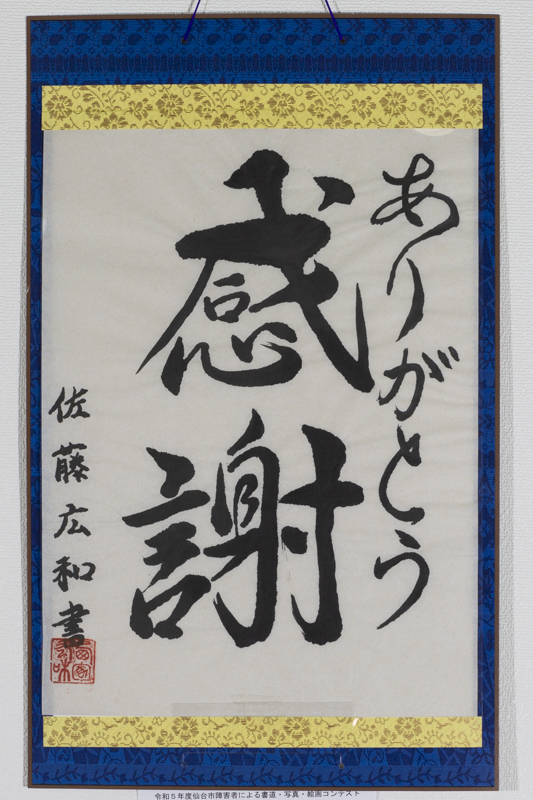 ありがとう
感謝
佐藤広和書
令和5年度仙台市障害者による書道・写真・絵画コンテスト